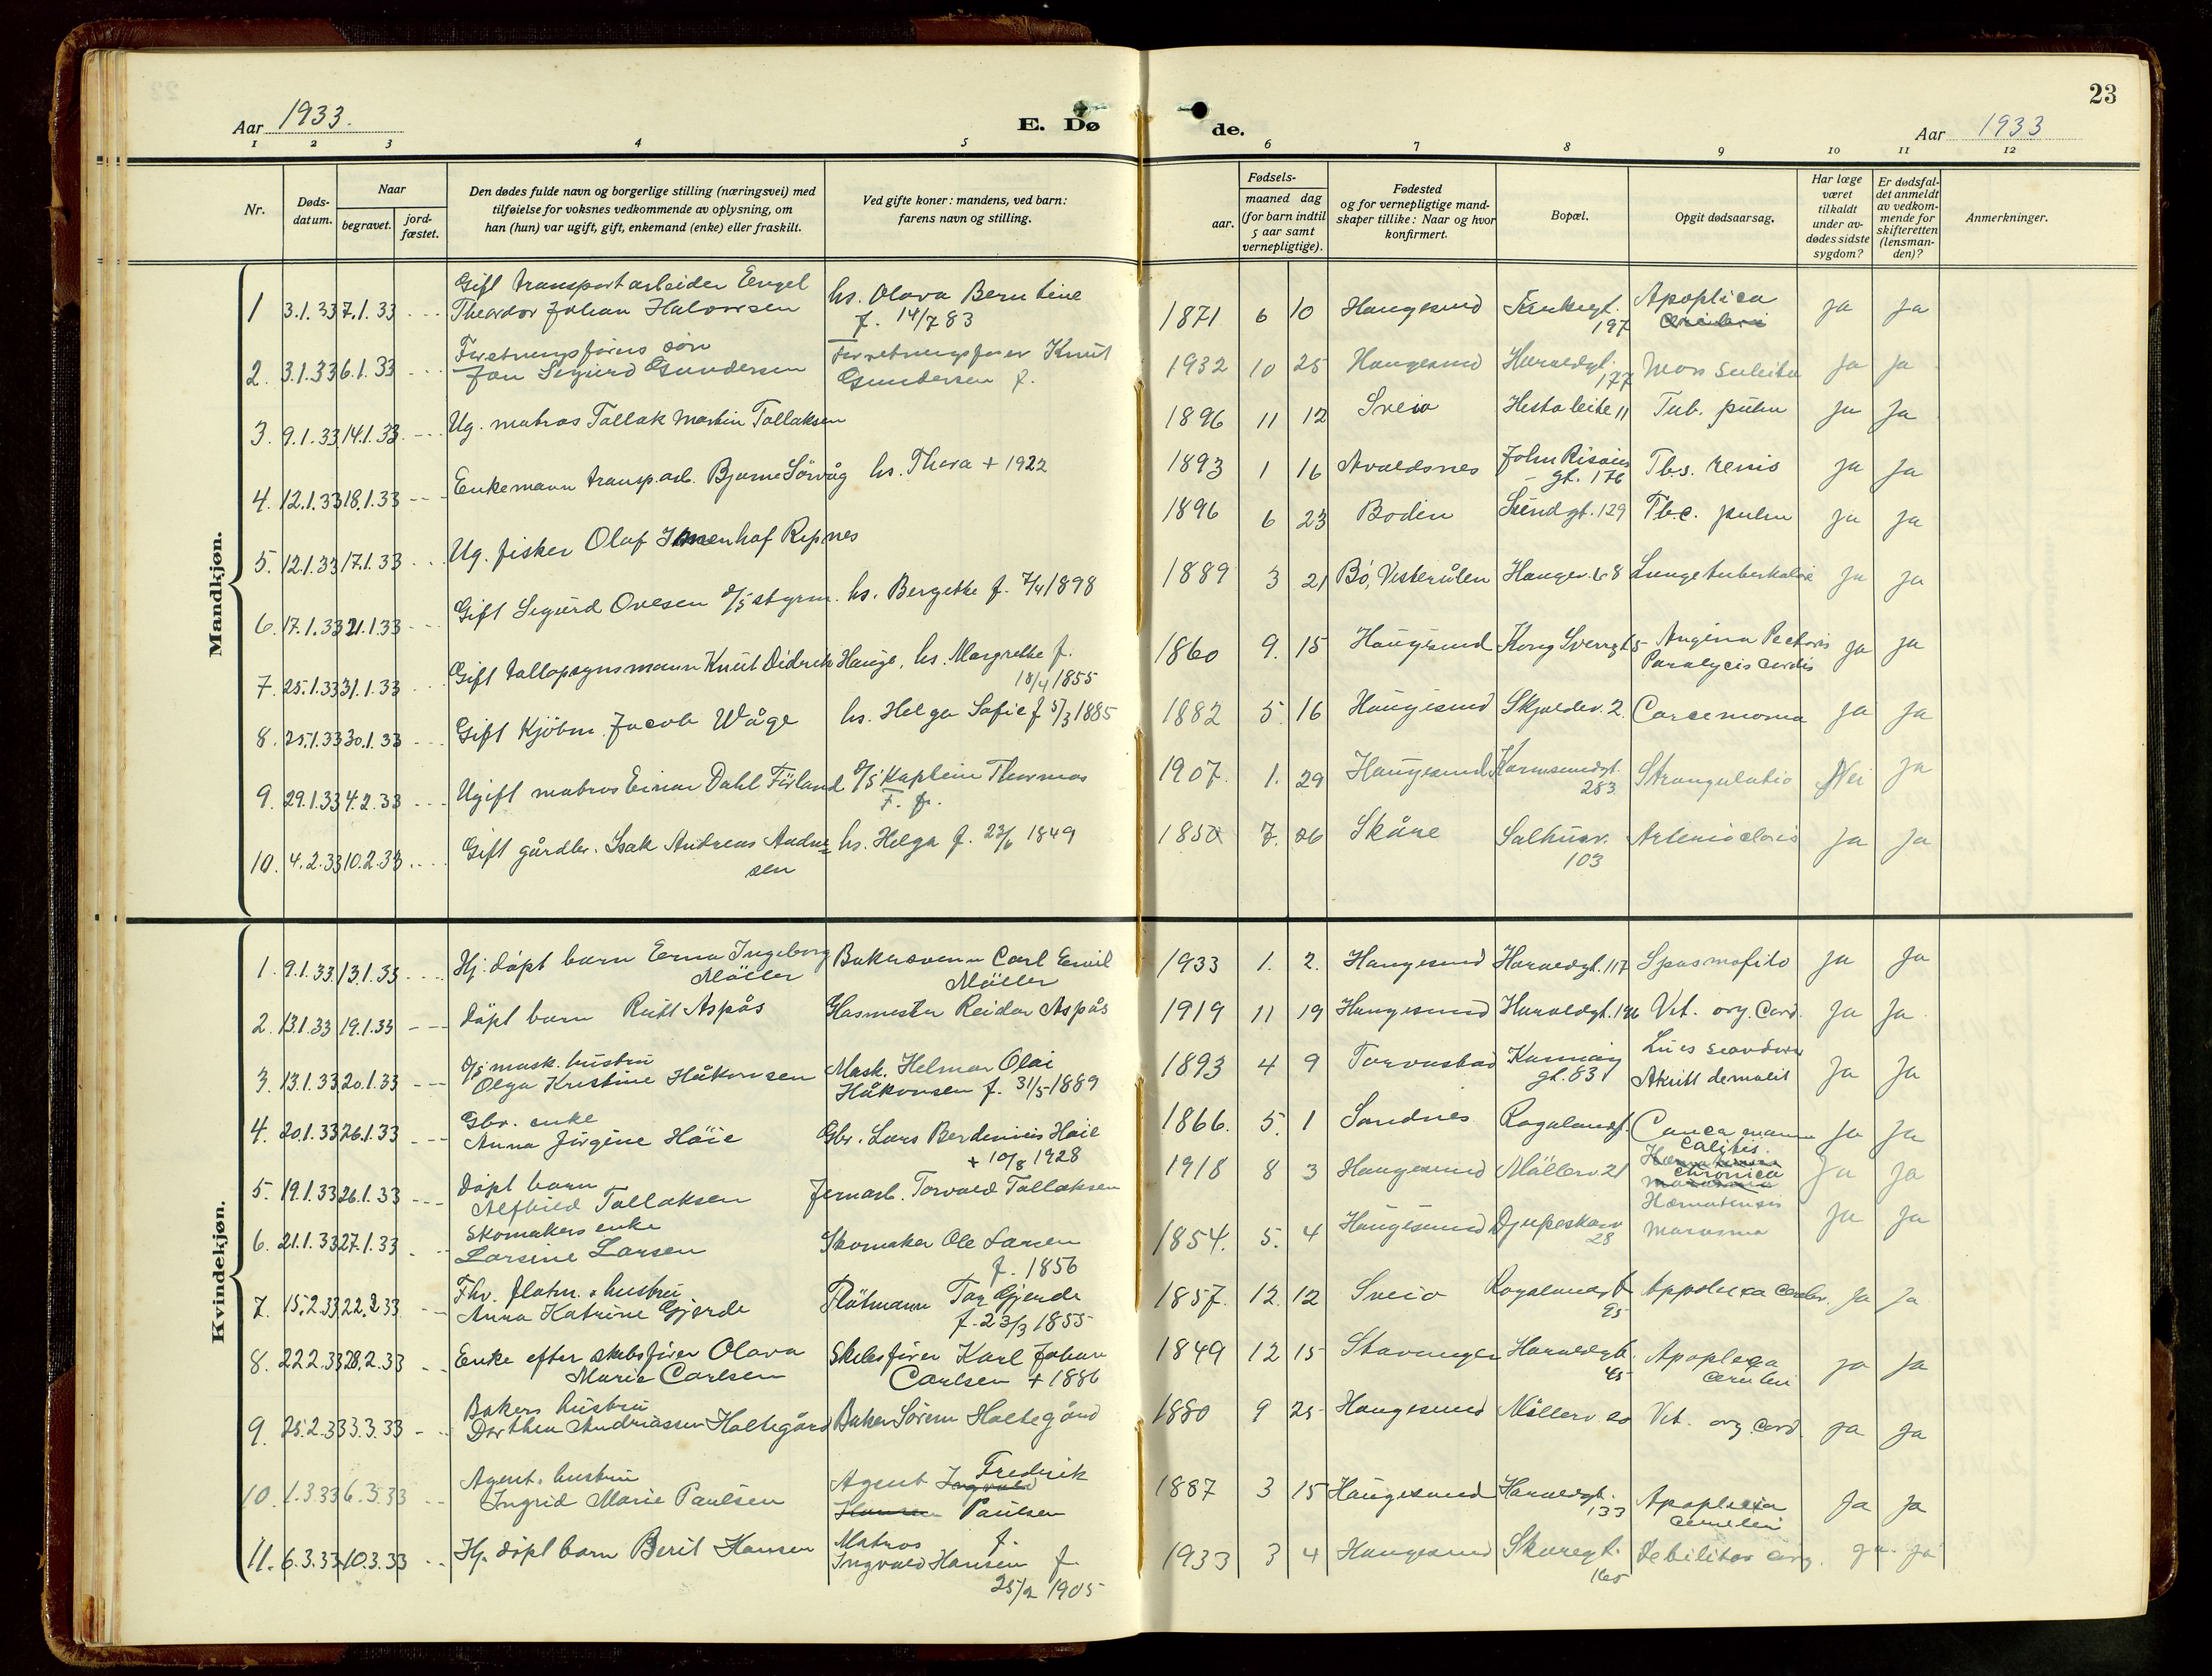 23
Aar 1933.
E. Døde.
Aar 1933
1 2 3 4 5 6 7 8 9 10 11 12
Nr.
Døds-datum.
Naar
begravet.
jord-fæstet.
Den dødes fulde navn og borgerlige stilling (næringsvei) med
tilføielse for voksnes vedkommende av oplysning, om
han (hun) var ugift, gift, enkemand (enke) eller fraskilt.
Ved gifte koner: mandens, ved barn:
farens navn og stilling.
Fødsels-
aar.
maaned dag
(for barn indtil
5 aar samt
vernepligtige).
Fødested
og for vernepligtige mand-
skaper tillike: Naar og hvor
konfirmert.
Bopæl.
Opgit dødsaarsag.
Har læge
været
tilkaldt
under av-
dødes sidste
sygdom?
Er dødsfal-
det anmeldt
av vedkom-
mende for
skifteretten
(lensman-
den)?
Anmerkninger.
Mandkjøn.
1 3.1.33 7.1.33 Gift transportarbeider Engel hs. Olava Berntine 1871 6 10 Haugesund Apoplica ja ja
Theordor Johan Halvorsen f. 14/7 83 197
2. 3.1.33 6.1.33 Forretningsförers sön Forretningsförer Knut 1932 10 25 Haugesund Haraldgt. Mors subita ja ja
Jan Sigurd Gundersen Gundersen f. 177
3. 9.1.33 14.1.33 Ug. matros Tallak Martin Tollaksen 1896 11 12 Sveio Hestaleite 11 Tub. pulm ja ja
4. 12.1.33 18.1.33 Enkemann transp.arb. Bjarne Sörvåg hs. Thora + 1922 1893 1 16 Avaldsnes John Risøins Tbs. renis ja ja
gt. 176
5. 12.1.33 17.1.33 Ug. fisker Olaf Ripnes 1896 6 23 Bodin Sundgt. 129 Tbc. pulm ja ja
6. 17.1.33 21.1.33 Gift Sigurd Ovesen d/s styrm. hs. Bergethe f. 7/4 1898 1889 3 21 Bö, Vesterålen Haugev. 68 Lungetuberkulose ja ja
7. 25.1.33 31.1.33 Gift tallopsynsmann Knut Didrik Hauge, hs. Margrethe f. 1860 9. 15 Haugesund Kong Sverresgt 5 Angina Pectoris ja ja
18/4 1855 Paralycis cordis
8. 25.1.33 30.1.33 Gift Kjöbm. Jacob Wåge hs. Helga Sofie f 5/3 1885 1882 5. 16 Haugesund Skjoldev. 2. Carcenoma ja ja
9. 29.1.33 4.2.33 Ugift matros Einar Dahl Förland d/s Kaptein Thormas 1907. 1. 29 Haugesund Karmsundgt. Strangulatio Nei ja
F. f. 283
10. 4.2.33 10.2.33 Gift gårdbr. Isak Andreas Andre= hs. Helga f. 23/6 1849 1850 7. 26 Skåre Salhusv. ja ja
sen 103
Kvindekjøn.
1. 9.1.33 13.1.33 Hj. döpt barn Erna Ingeborg Bakersvenn Carl Emil 1933 1. 2. Haugesund Haraldgt. 117 Spasmofili ja ja
Möller Möller
2. 13.1.33 19.1.33 döpt barn Ruth Aspås Glasmester Reidar Aspås 1919 11 19 Haugesund Haraldgt. 196 Vit. org. Cord. ja ja
3. 13.1.33 20.1.33 d/s mask. hustru Mask. Helmar Olai 1893 4 9 Torvastad Karmöy Lues ja ja
Olga Kristine Håkonsen Håkonsen f. 31/5-1889 gt. 83 Akutt dermatit
4. 20.1.33 26.1.33 Gbr. enke Gbr. Lars Berdinius Höie 1866. 5. 1 Sandnes Rogalandsg. Canca mamma ja ja
Anna Jörgine Höie + 10/8 1928
5. 19.1.33 26.1.33 döpt barn Jernarb. Torvald Tollaksen 1918 8 3 Haugesund Möllerv. 21 Colitis chronica ja ja
Alfhild Tollaksen
6. 21.1.33 27.1.33 Skomakers enke Skomaker Ole Larsen 1854. 5. 4 Haugesund Djupeskarv Hæmatemesis ja ja
Larsine Larsen f. 1856 28 Marasma
7. 15.2.33 22.2.33 Fhv. flötm. hustru Flötmann Tor Gjerde 1857. 12. 12 Sveio Rogalandsgt. Appolexa Cerebr. ja ja
Anna Katrine Gjerde f. 23/3 1855 95
8. 22.2.33 28.2.33 Enke efter skibsförer Olava Skibsförer Karl Johan 1849 12 15 Stavanger Haraldgt. Apoplexa ja ja
Marie Carlsen Carlsen + 1886 45 cerebri
9. 25.2.33 3.3.33 Bakers hustru Baker Sören Holtegård 1880 9 25 Haugesund Möllerv. 20 Vit. org. Cord ja ja
Dorthea Andreassen Holtegård
10. 1.3.33 6.3.33 Agent. hustru Agent Ingvald Fredrik 1887 3 15 Haugesund Haraldgt. Apoplexia ja ja
Ingrid Marie Paulsen Hansen Paulsen 133 cerebri
11. 6.3.33 10.3.33 Hj. döpt barn Berit Hansen Matros f. 1933 3 4 Haugesund Skaregt. Debilitas cong. ja ja
Ingvald Hansen f. 165
25/2 1905